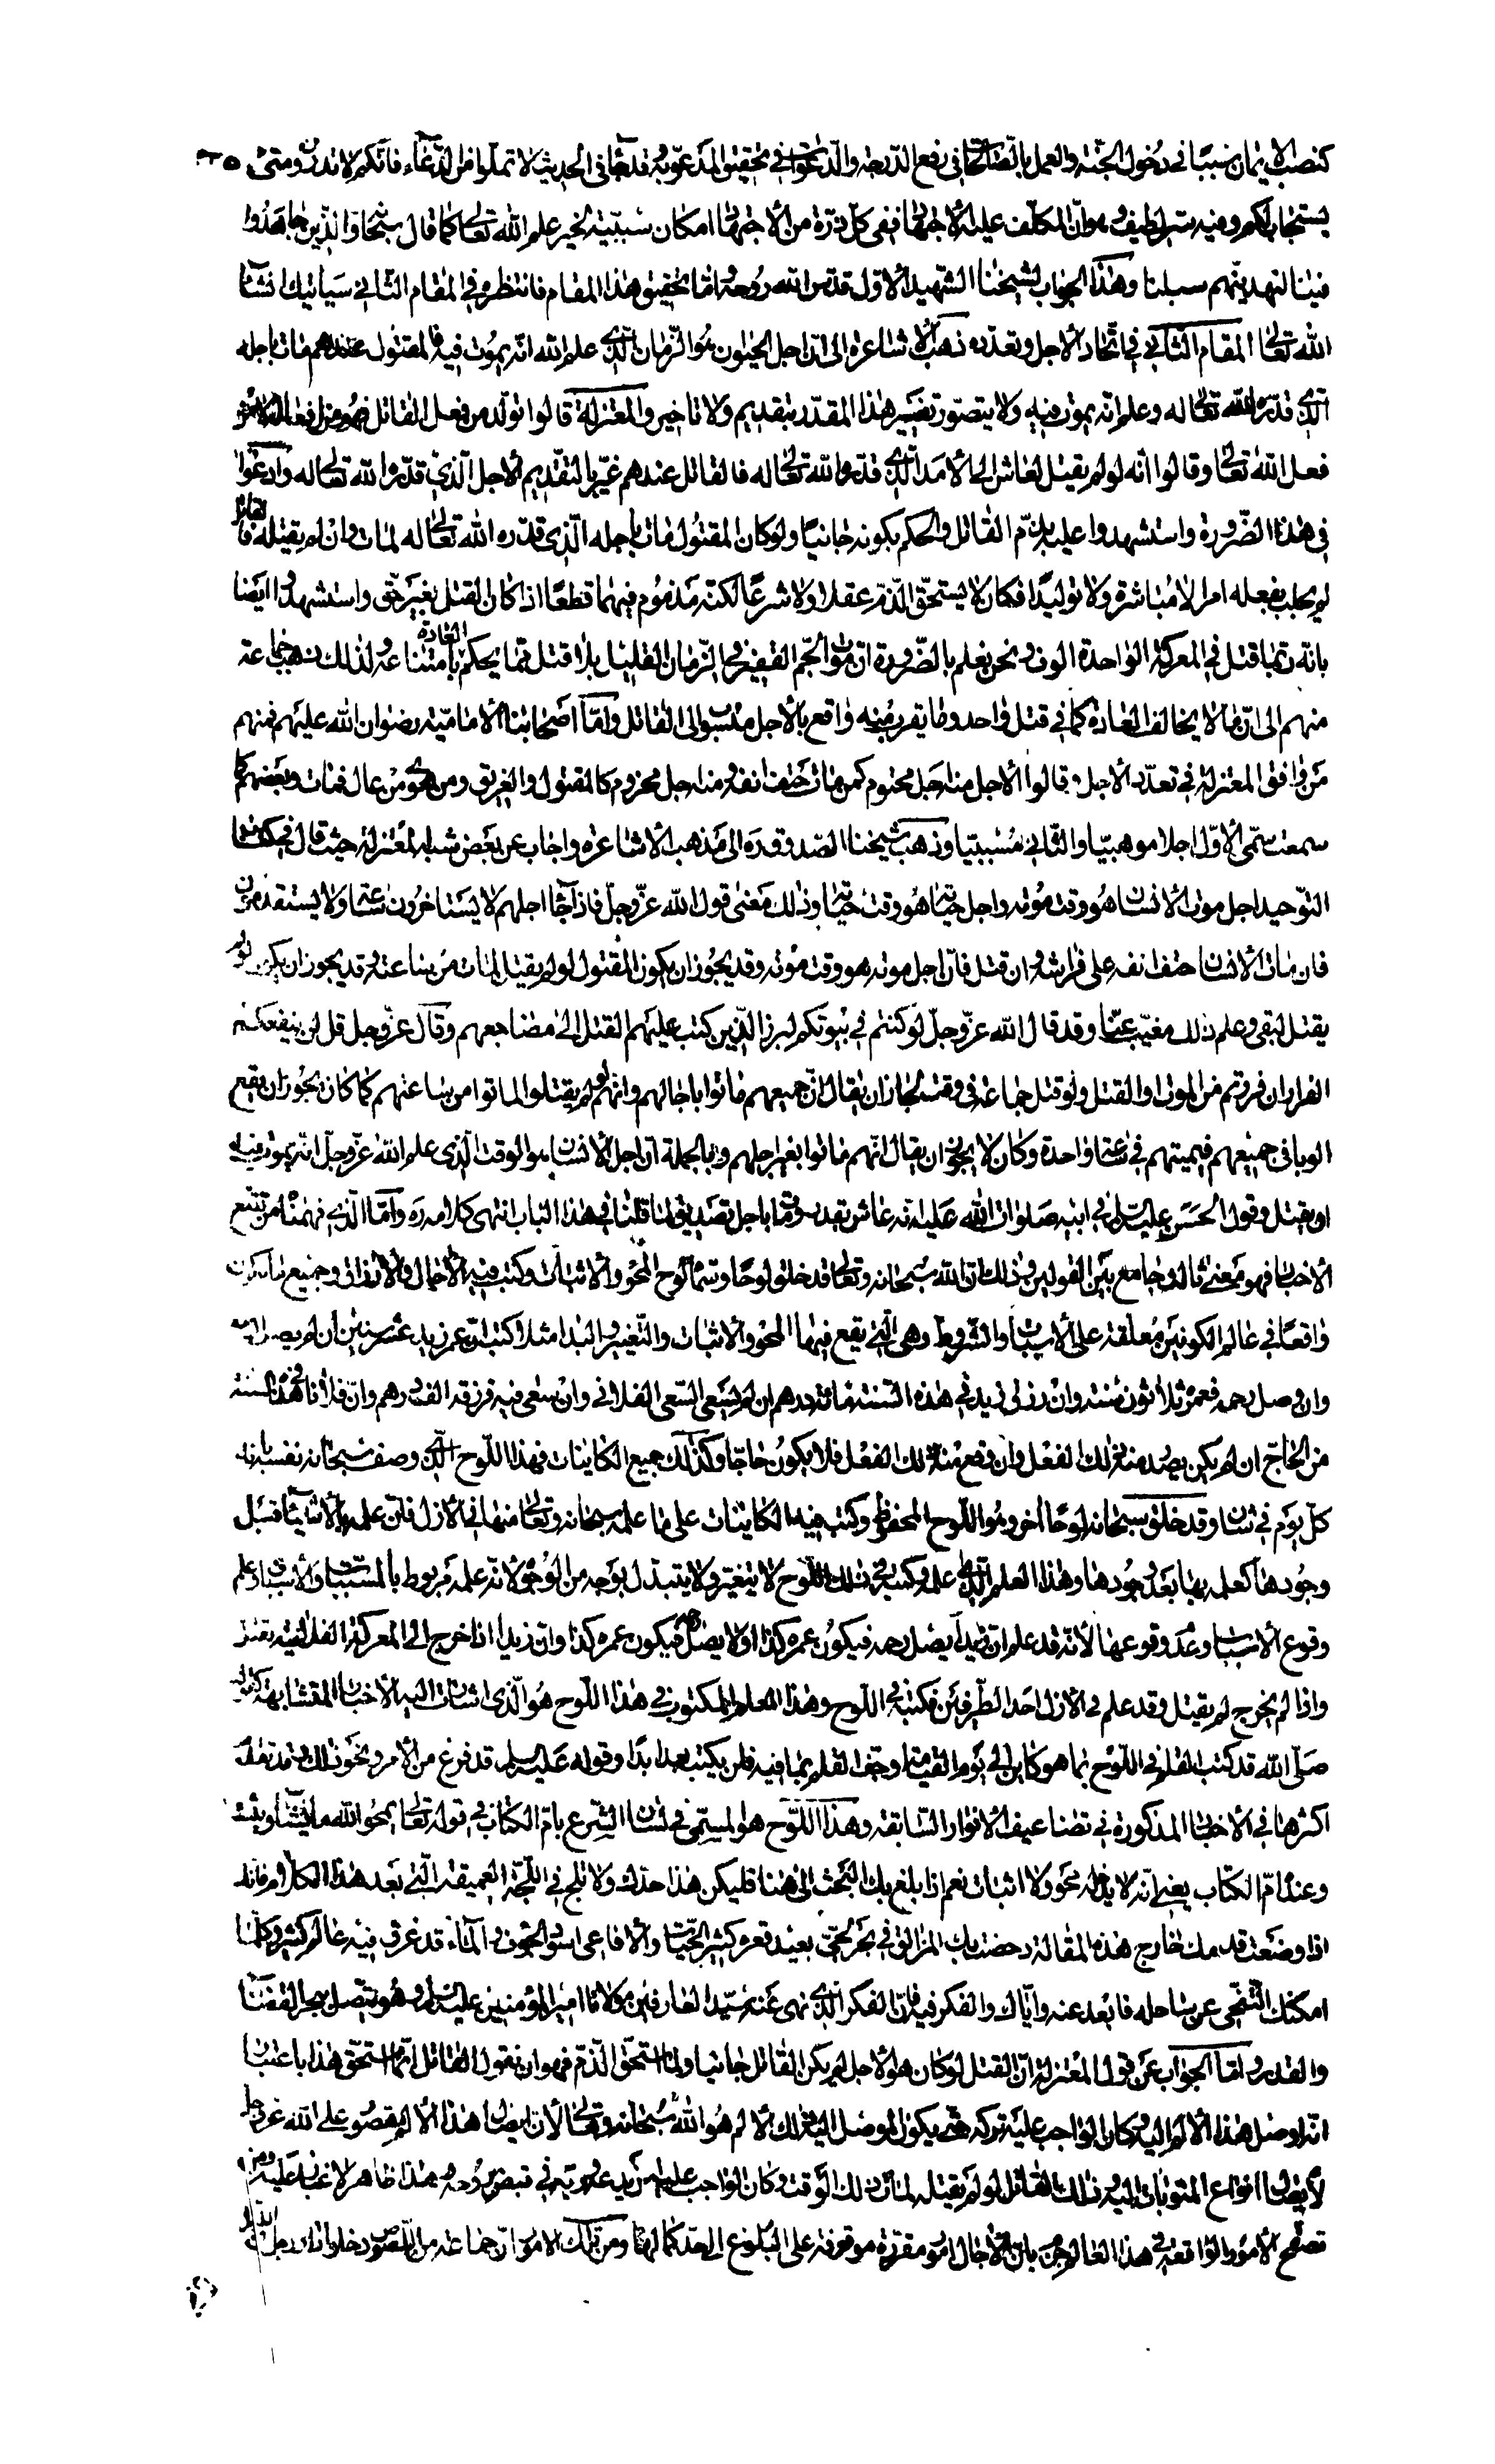 كنصب الايمان سببا في دخول الجنة والعمل بالصالحات في رفع الدرجة والدعوات في تحقيق المدعو به وقد جاء في الحديث لا تملوا من الدعاء فانكم لا تدرون متى
يستجاب لكم وفيه سر لطيف وهو ان المكلف عليه الاجتهاد ففي كل ذرة من الاجتهاد امكان سببية لخير علم الله تعالى كما قال سبحانه والذين جاهدوا
فينا لنهدينهم سبلنا وهذا الجواب لشيخنا الشهيد الاول قدس الله روحه واما تحقيق هذا المقام فانتظره في المقام الثاني سياتيك انشاء
الله تعالى المقام الثاني في اتحاد الاجل وتعدده ذهب الاشاعرة الى ان اجل الحيوان هو الزمان الذي علم الله انه يموت فيه فالمقتول عندهم مات باجله
الذي قدره الله تعالى له وعلم انه يموت فيه ولا يتصور تغيير هذا المقدر بتقديم ولا تاخير والمعتزلة قالوا تولد من فعل القاتل فهو من افعاله لا من
فعل الله تعالى وقالوا انه لو لم يقتل لعاش الى الامد الذي قدره الله تعالى له فالقاتل عندهم غير بالتقديم الاجل الذي قدره الله تعالى له وادعوا
في هذا الضرورة واستشهدوا عليه بذم القاتل والحكم بكونه جانيا ولو كان المقتول مات باجله الذي قدره الله تعالى له لمات وان لم يقتله فالقاتل
لم يجلب بفعله امرا لا مباشرة ولا توليدا فكان لا يستحق الذم عقلا ولا شرعا لكنه مذموم فيهما قطعا اذا كان القتل بغير حق واستشهدوا ايضا
بانه ربما قتل في المعركة الواحدة الوف ونحن نعلم بالضرورة ان موت الجم الغفير في الزمان القليل بلا قتل مما يحكم العادة بامتناعه ولذلك ذهب جماعة
منهم الى ان ما لا يخالف العادة كما في قتل واحد وما يقرب منه واقع بالاجل منسوب الى القاتل واما اصحابنا الامامية رضوان الله عليهم فمنهم
من وافق المعتزلة في تعدد الاجل وقالوا الاجل منه اجل محتوم كمن مات حتف انفه ومنه اجل مخروم كالمقتول والغريق ومن هوى من عال فمات وبعضهم كما
سمعت سمى الاول اجلا موهبيا والثاني مسببيا وذهب شيخنا الصدوق ره الى مذهب الاشاعرة واجاب عن بعض شبه المعتزلة حيث قال في كتاب
التوحيد اجل موت الانسان هو وقت موته واجل حياته هو وقت حياته وذلك معنى قول الله عز وجل فاذا جاء اجلهم لا يستاخرون ساعة ولا يستقدمون
فان مات الانسان حتف انفه على فراشه وان قتل فان اجل موته هو وقت موته وقد يجوز ان يكون المقتول لو لم يقتل لمات من ساعته وقد يجوز ان يكون لو لم
يقتل لبقى وعلم ذلك مغيب عنا وقد قال الله عز وجل لو كنتم في بيوتكم لبرز الذين كتب عليهم القتل الى مضاجعهم وقال عز وجل قل لن ينفعكم
الفرار ان فررتم من الموت او القتل ولو قتل جماعة في وقت لجاز ان يقال ان جميعهم ماتوا باجالهم وانهم لو لم يقتلوا لماتوا من ساعتهم كما كان يجوز ان يقع
الوبا في جميعهم فيميتهم في ساعة واحدة وكان لا يجوز ان يقال انهم ماتوا بغير اجلهم وبالجملة ان اجل الانسان هو الوقت الذي علم الله عز وجل انه يموت فيه
او يقتل وقول الحسن عليه السلام في ابيه صلوات الله عليه انه عاش بقدر ومات باجل تصديق لما قلنا في هذا الباب انتهى كلامه ره واما الذي فهمناه من تتبع
الاخبار فهو معنى ثالث وجامع بين القولين وذلك ان الله سبحانه وتعالى قد خلق لوحا وسماه لوح المحو والاثبات وكتب فيه الاجال والارزاق وجميع ما يكون
واقعا في عالم الكونين معلقة على الاسباب والشروط وهي التي يقع فيها المحو والاثبات والتغيير والبدا مثلا كتب ان عمر زيد عشر سنين ان لم يصل رحمه
وان وصل رحمه فعمره ثلاثون سنة وان رزق زيد في هذه السنة مائة درهم ان لم يسع السعى الفلاني وان سعى فيه فرزقه الف درهم وان فلانا في هذه السنة
من الحاج ان لم يكن يصدر منه ذلك الفعل وان وقع منه ذلك الفعل فلا يكون حاجا وكذلك جميع الكاينات فهذا اللوح الذي وصف سبحانه نفسه بانه
كل يوم في شان وقد خلق سبحانه لوحا اخر وهو اللوح المحفوظ وكتب فيه الكاينات على ما علمه سبحانه وتعالى منها في الازل فان علمه بالاشياء قبل
وجودها كعلمه بها بعد وجودها وهذا العلم الذي علمه وكتبه في ذلك اللوح لا يتغير ولا يتبدل بوجه من الوجوه لانه علمه مربوط بالمسببات والاسباب وعلم
وقوع الاسباب وعدم وقوعها لانه قد علم ان زيدا يصل رحمه فيكون عمره كذا او لا يصل رحمه فيكون عمره كذا وان زيدا اذا خرج الى المعركة الفلانية يقتل
واذا لم يخرج لم يقتل وقد علم في الازل احد الطرفين فكتبه في اللوح وهذا العلم المكتوب في هذا اللوح هو الذي اشارت اليه الاخبار المتشابهة كقوله
صلى الله قد كتب القلم في اللوح بما هو كاين الى يوم القيمة وجف القلم بما فيه فلن يكتب بعد ابدا وقوله عليه السلم قد فرغ من الامر ونحو ذلك وقد تقدم
اكثرها في الاخبار المذكورة في تضاعيف الانوار السابقة وهذا اللوح هو المسمى في لسان الشرع بام الكتاب في قوله تعالى يمحو الله ما يشاء ويثبت
وعنده ام الكتاب يعني انه لا يدخله محو ولا اثبات نعم اذا بلغ بك البحث الى هنا فليكن هذا حدك ولا تلج في اللجة العميقة التي بعد هذا الكلام فانك
اذا وضعت قدمك خارج هذه المقالة دحضت بك المزالق في بحر لجي بعيد قعره كثير الحيات والافاعي اسود الجون والماء قد غرق فيه عالم كثير وكلما
امكنك التنحى عن ساحله فابعد عنه واياك والفكر فيه فان الفكر الذي نهى عنه سيد العارفين مولانا امير المؤمنين عليه السلام وهو يتصل ببحر القضاء
والقدر واما الجواب عن قول المعتزلة ان القتل لو كان هو الاجل لم يكن القاتل جانيا ولما استحق الذم فهو ان نقول القاتل انما استحق هذا باعتبار
انه اوصل هذا الالم اليه وكان الواجب عليه تركه حتى يكون الموصل اليه ذلك الالم هو الله سبحانه وتعالى لان ايصال هذا الالم مقصور على الله عز وجل
لايصال انواع المثوبات اليه وذلك القاتل لو لم يقتله لمات في ذلك الوقت وكان الواجب عليه في قبض روحه وهذا ظاهر لا غبار عليه ومن
تصفح الامور الواقعة في هذا العالم جزم بان الاجال امور مقررة موقوفة على البلوغ الى حد كمالها ومن تلك الامور ان جماعة من اللصوص دخلوا دار رجل